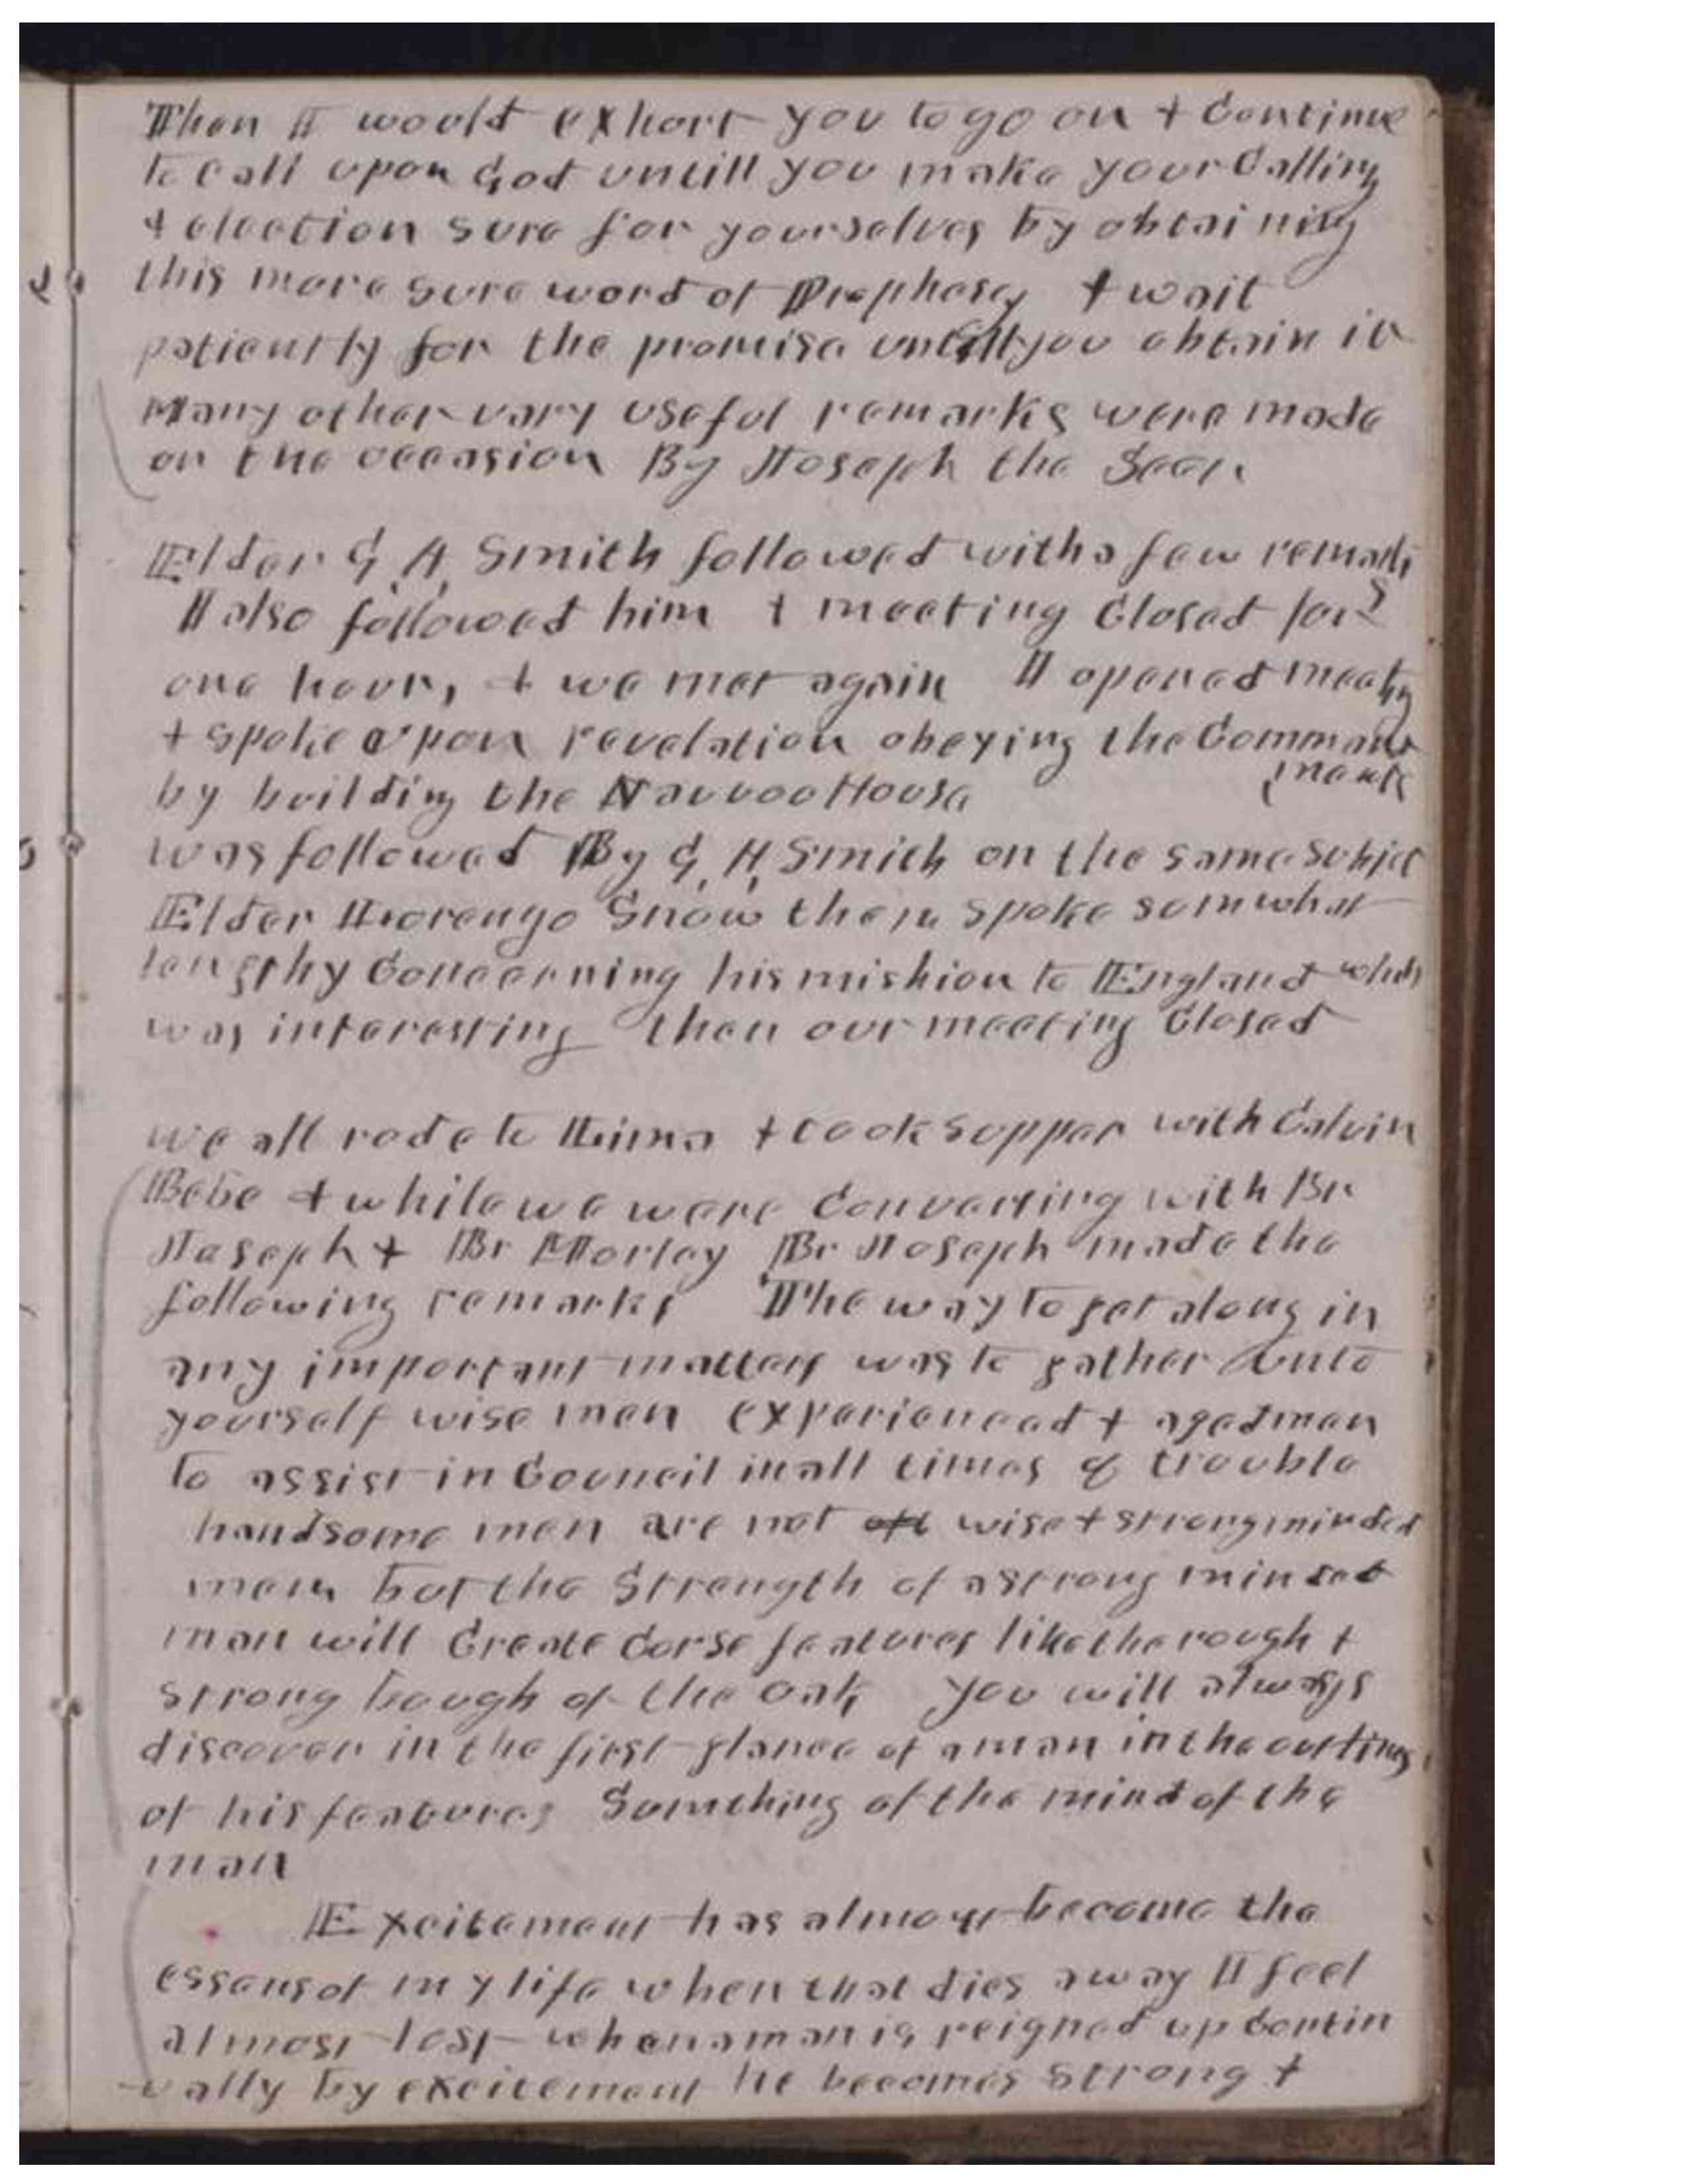 Then I would exhort you to go on & Continue
to call upon God untill you make your Calling
& election sure for yourselves by obtaining
this more sure word of Prophesey & wait
patiently for the promise untill you obtain it
Many other vary useful remarks were made
on the occasion By Joseph the Seer
Elder G, A, Smith followed with a few remarks
I also followed him & meeting Closed for
one hour, & we met again I opened meeting
& spoke upon revelation obeying the Command
ment
by building the Nauvoo House
was followed By G, A, Smith on the same subject
Elder Lorenzo Snow then spoke somwhat
lengthy Concerning his mishion to England which
was interesting then our meeting Closed
we all rode to Lima & took supper with Calvin
Bebe & while we were Conversing with Br
Joseph & Br Morley Br Joseph made the
following remarks The way to get along in
any important matter was to gather unto
yourself wise men experienced & aged men
to assist in Council in all times of trouble
handsome men are not wise & strong minded
men but the Strength of a strong minded
man will Create Corse features like the rough &
strong bough of the oak you will always
discover in the first glance of a man in the outlines
of his features Something of the mind of the
man
Excitement has almost become the
essens of my life when that dies away I feel
almost lost when a man is reigned up Contin
ually by excitement he becomes strong &